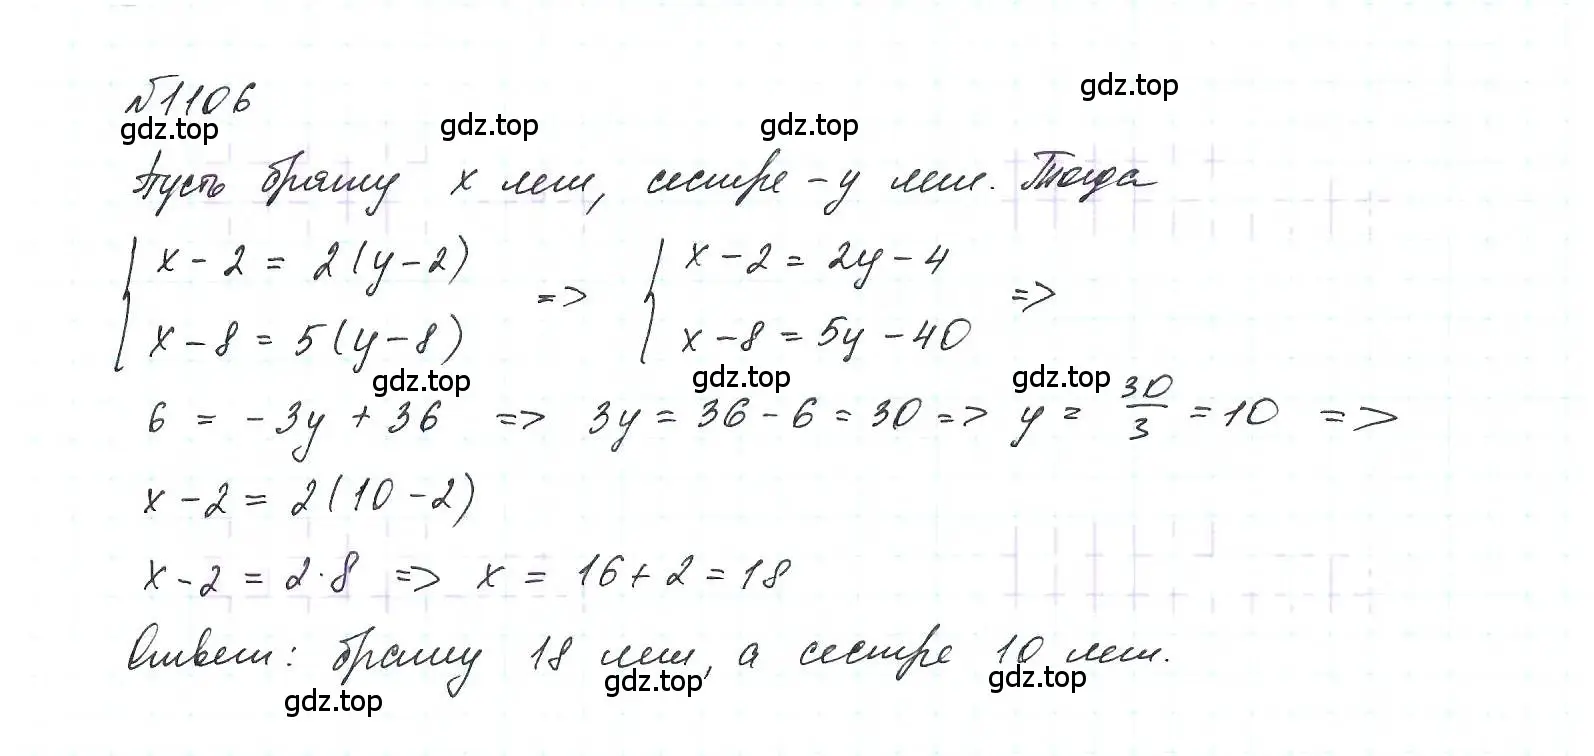 №1106
gdz.top
gdz.top gdz.top gdz.top
Пусть брату x лет, сестре - y лет. Тогда
{ x - 2 = 2(y - 2) => { x - 2 = 2y - 4 =>
x - 8 = 5(y - 8) x - 8 = 5y - 40
gdz.top gdz.top gdz.top
6 = -3y + 36 => 3y = 36 - 6 = 30 => y = 30/3 = 10 =>
x - 2 = 2(10 - 2)
x - 2 = 2·8 => x = 16 + 2 = 18
Ответ: брату 18 лет, а сестре 10 лет.
gdz.top gdz.top gdz.top